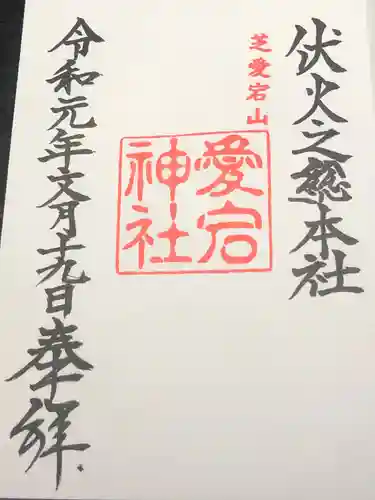 伏火之総本社
芝愛宕山
愛宕
神社
令和元年文月十九日奉拝